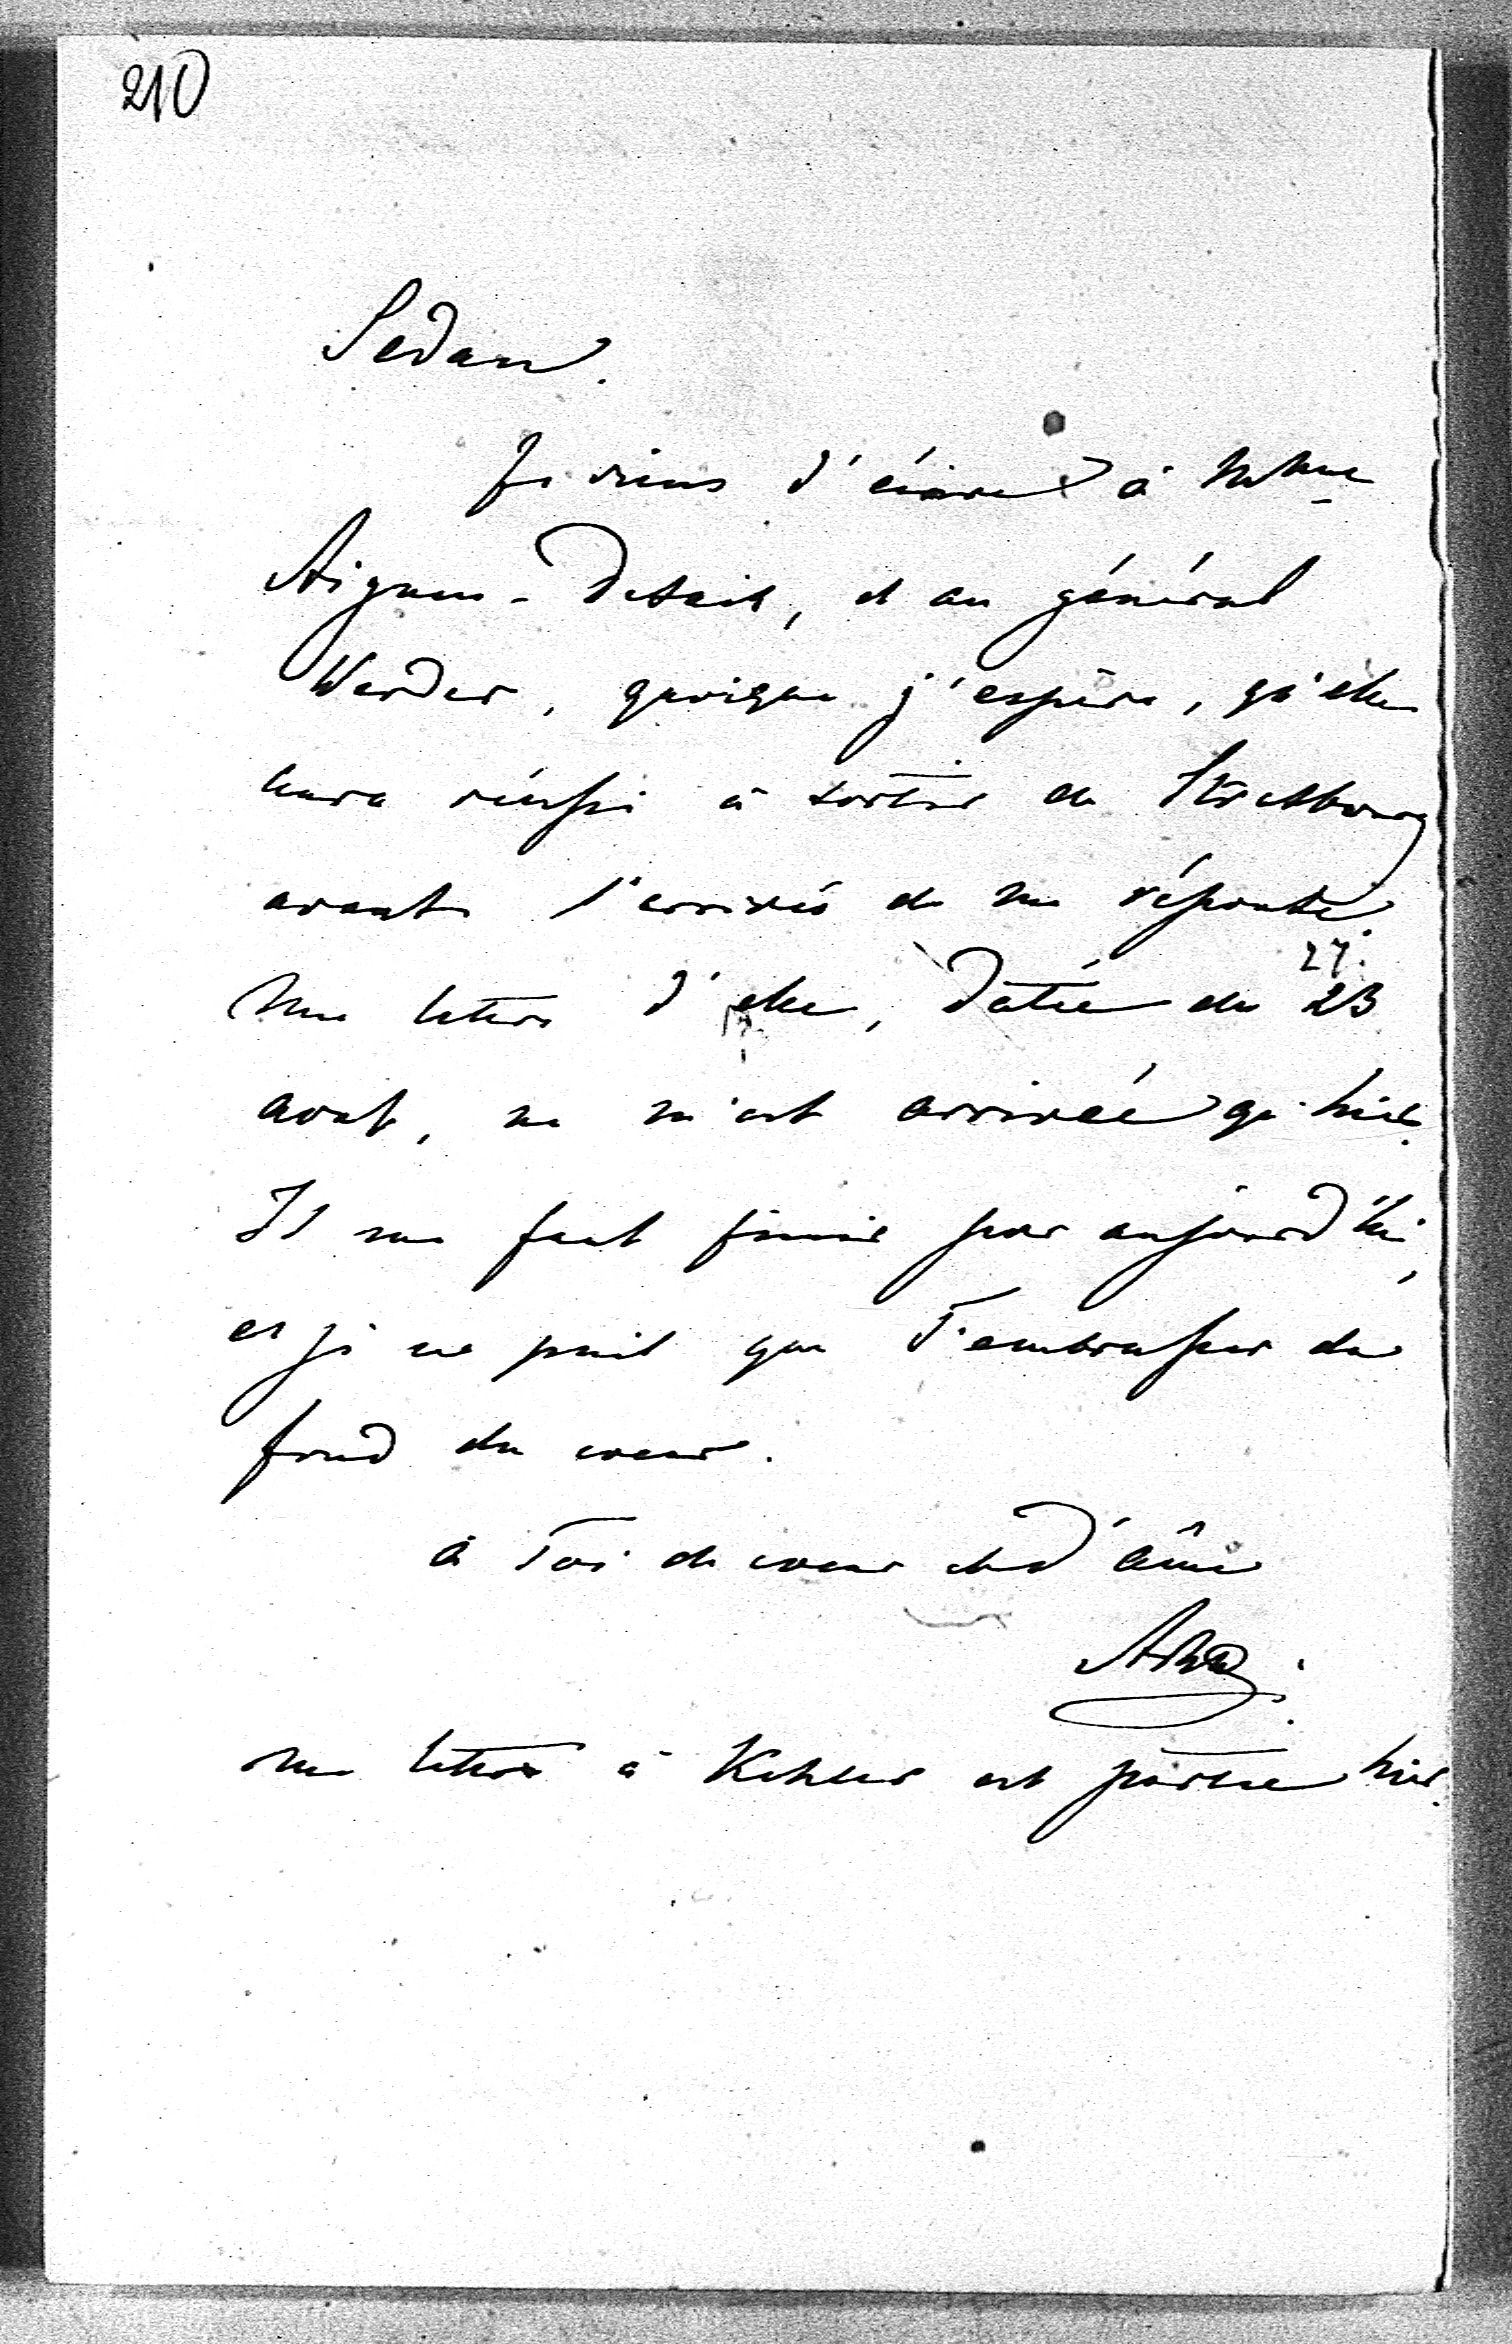 210
Sedan.
Je viens d'écrire à Mme
Aignan-Détail, et au général
Werder, quoique j'espère, qu'elle
aura réussi à sortir de Strasbourg
avant l'arrivée de ma réponse.
27.
Une lettre d'elle, datée du 23
aout, ne m'est arrivée qu'hier.
Il me faut finir pour aujourd'hui,
et je ne puis que T'embrasser du
fond du coeur.
à Toi de coeur et d'âme
ma lettre à Kehler est partie hier.